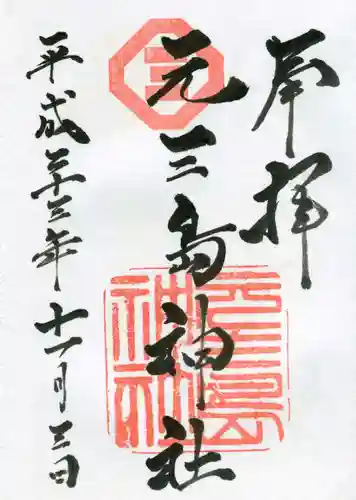 奉拝
元三島神社
平成二十三年十一月三日